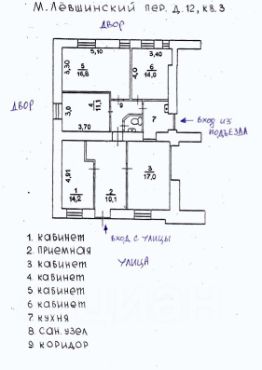 М. Лёвшинский пер. д.12, кв.3
ДВОР
5,10
3,40
5
16,8
3,30
4,0
6
14,0
ДВОР
4
11,1
9
3,0
7
ВХОД ИЗ
ПОДЪЕЗДА
3,70
4,91
3
17,0
1
14,2
2
10,1
ВХОД С УЛИЦЫ
УЛИЦА
1 КАБИНЕТ
2 ПРИЕМНАЯ
3 КАБИНЕТ
4 КАБИНЕТ
5 КАБИНЕТ
6 КАБИНЕТ
7 КУХНЯ
8 САН. УЗЕЛ
9 КОРИДОР